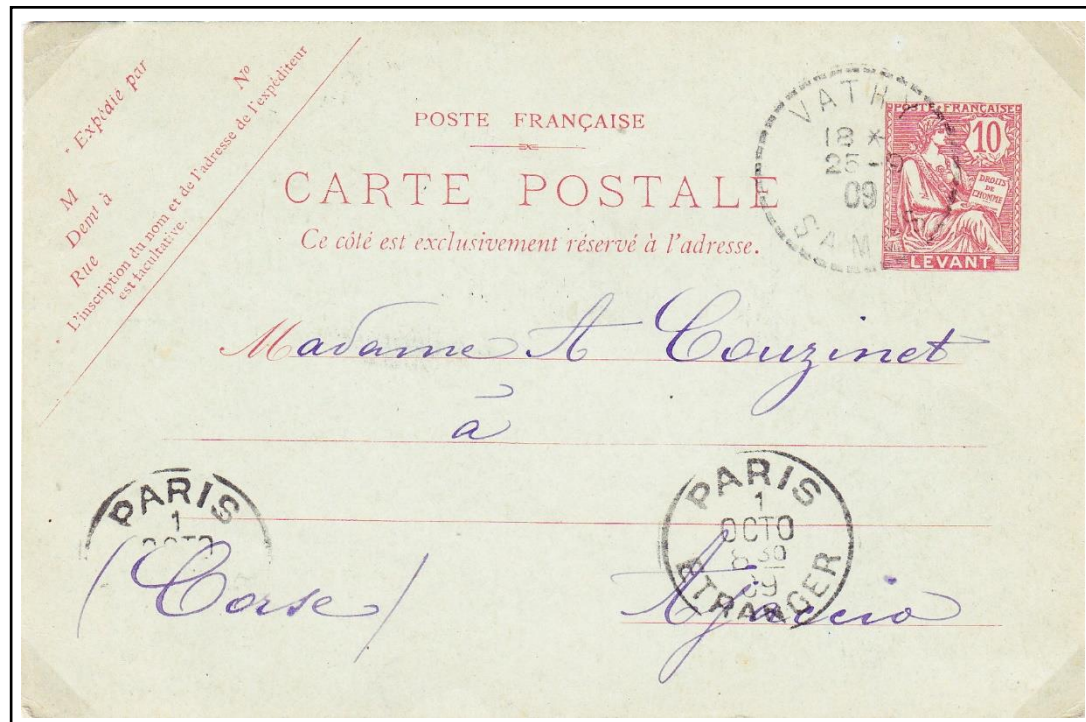 Expédié par
N°
M
Demt à
Rue
L'inscription du nom et de l'adresse de l'expéditeur
est facultative.
POSTE FRANÇAISE
CARTE POSTALE
Ce côté est exclusivement réservé à l'adresse.
VATHY
18 *
25-9
09
SAMOS
POSTE FRANÇAISE
10
DROITS
DE
L'HOMME
LEVANT
Madame A Couzinet
à
PARIS
1
OCTO
PARIS
1
OCTO
8 30
09
ETRANGER
(Corse)
Ajaccio